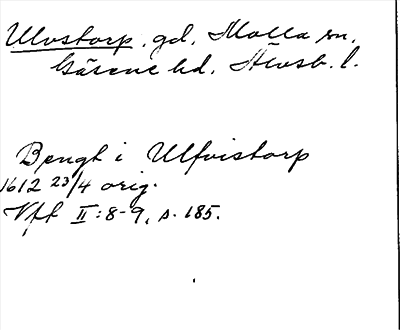 Ulvstorp, gd, Molla sn.
Gäsene hd, Älvsb. l.
Bengt i Ulfvistorp
1612 23/4 orig.
Vft II:8-9, s. 185.